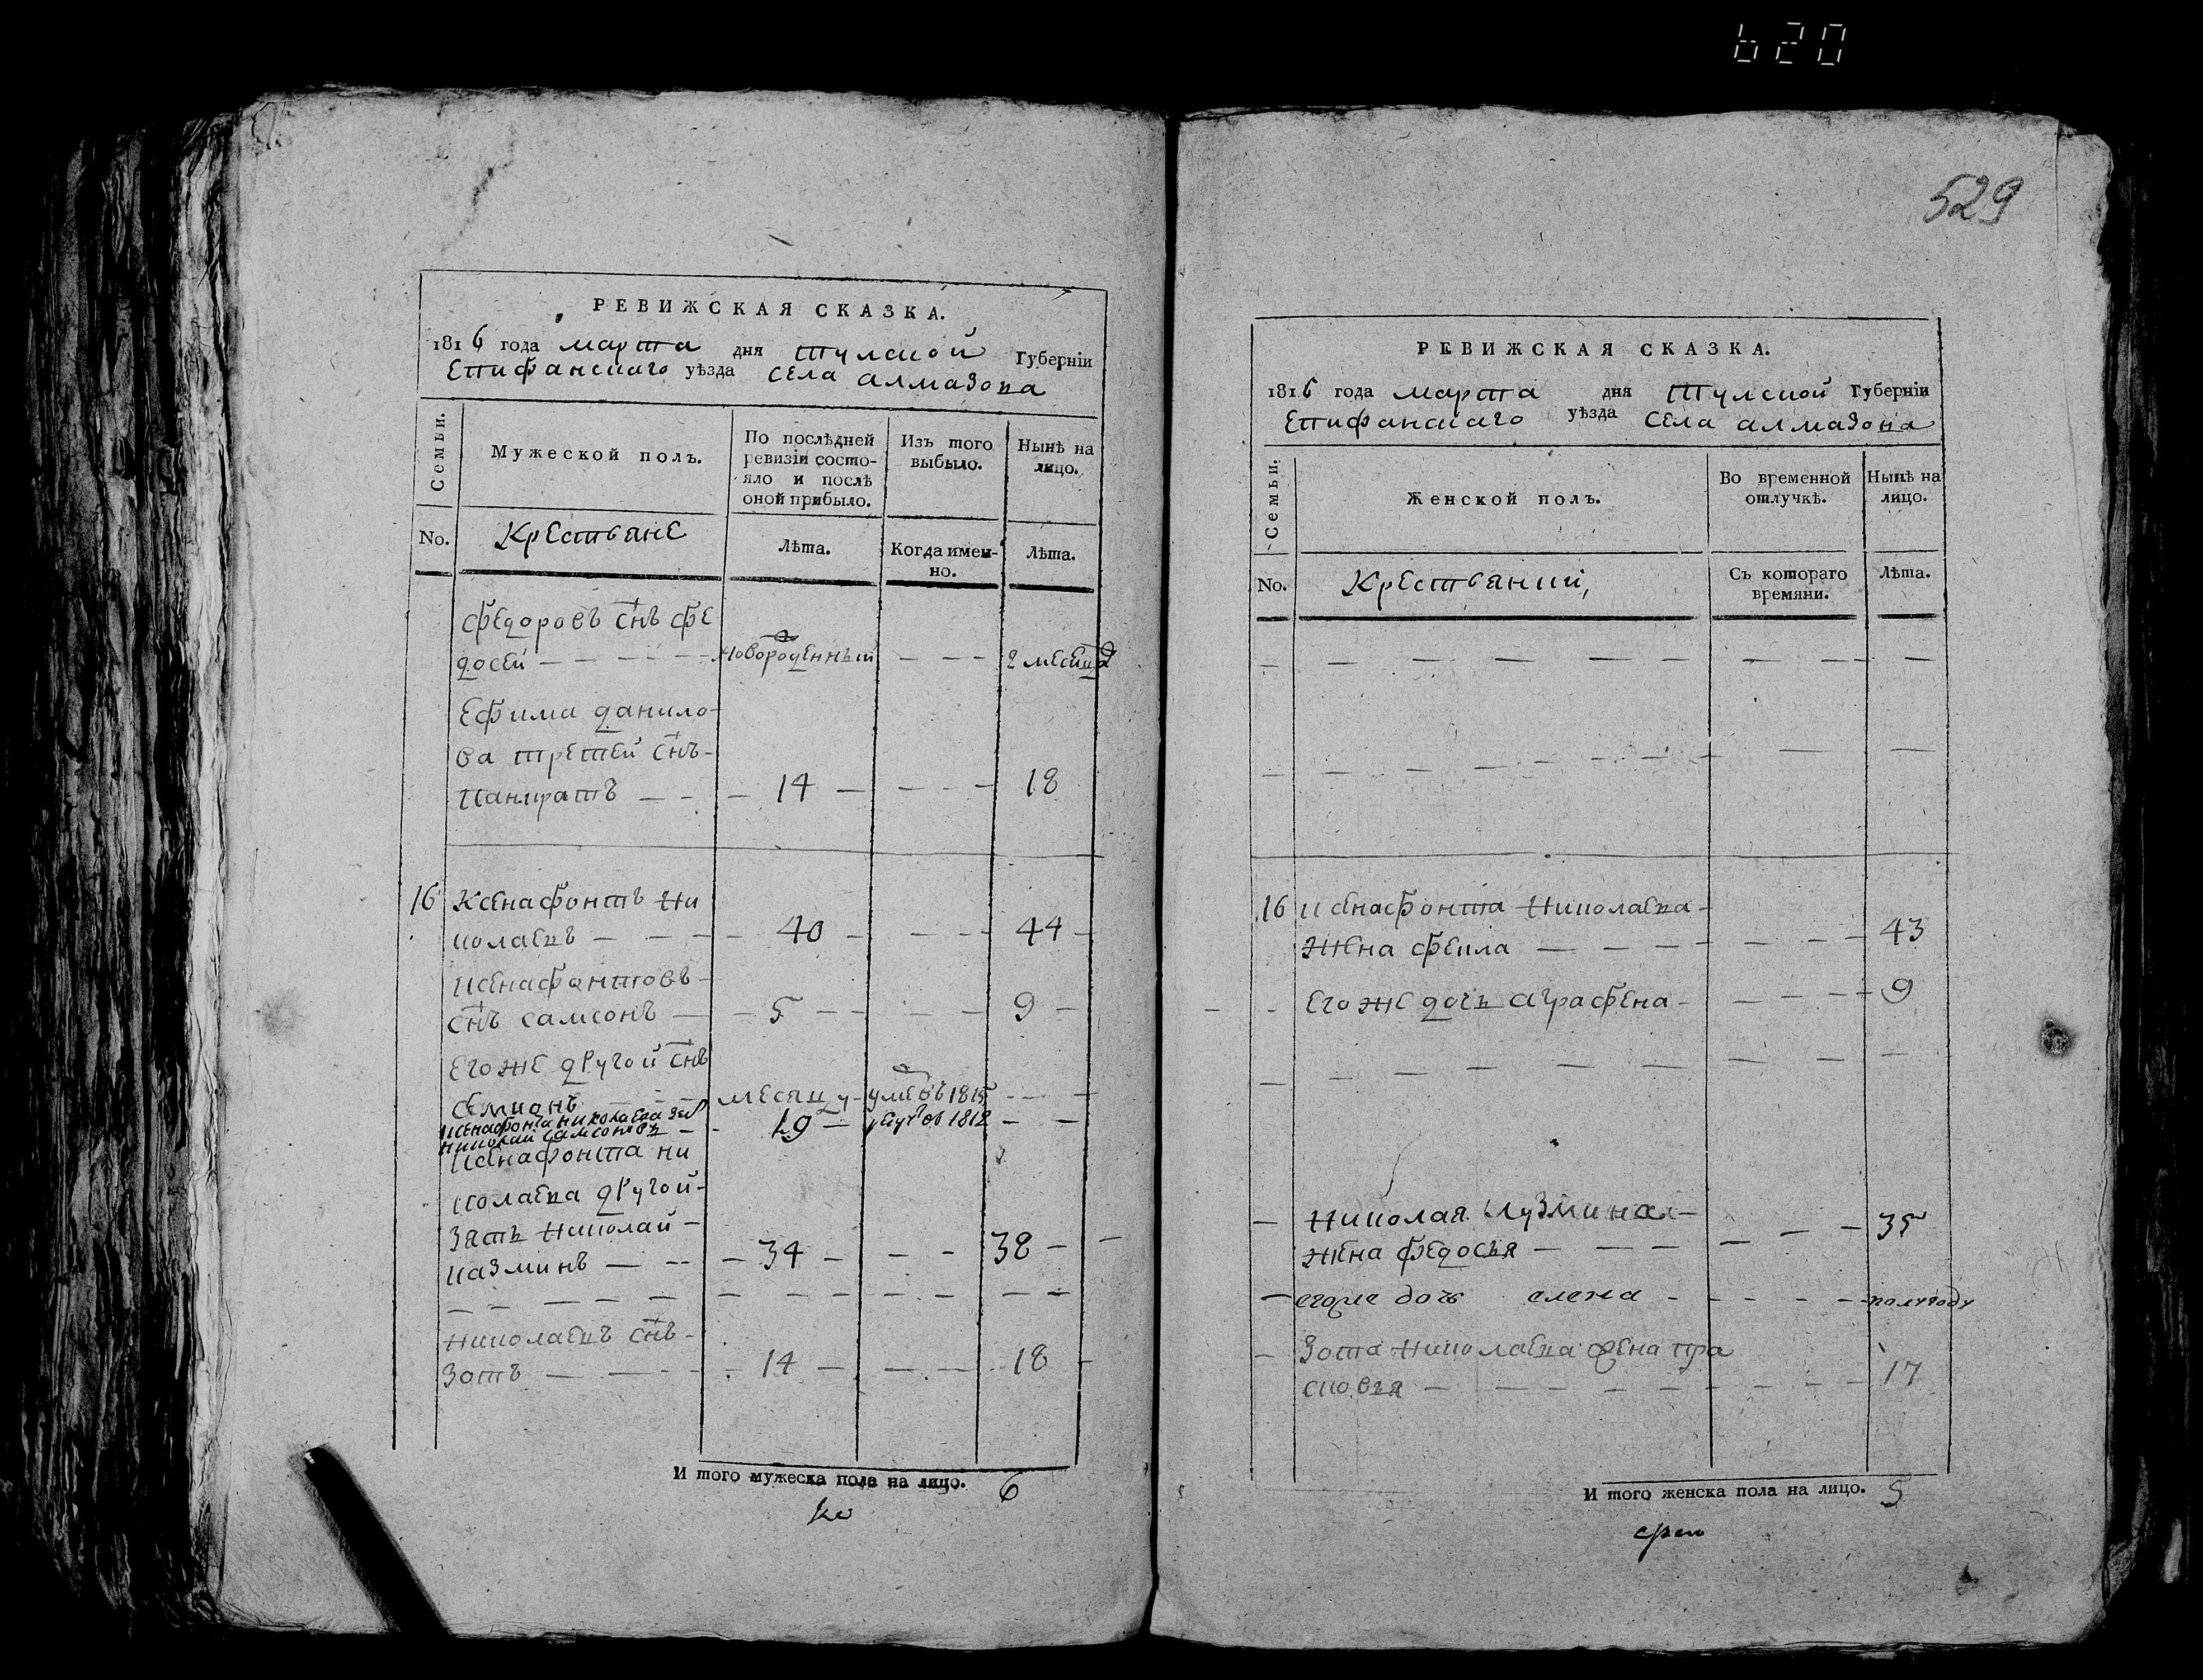 620
529
РЕВИЖСКАЯ СКАЗКА.
1816 года марта дня Тулской Губерніи
Епифанскаго уѣзда села алмазова
Семьи.
Мужеской полъ.
По послѣдней ревизіи состо-
яло и послѣ оной прибыло.
Изъ того выбыло.
Нынѣ на лицо.
No.
Крестьяне
Лѣта.
Когда имен-
но.
Лѣта.
Федоровъ снъ фе
досей — — — — новороденный — — — 2 месеца
Ефима данило-
ва третей снъ-
Панкратъ — — — 14 — — — — 18
16 Ксенафонтъ Ни
колаевъ — — — — 40 — — — — 44 —
Ксенафонтовъ-
снъ самсонъ — — 5 — — — 9 —
Его же другой снъ
семионъ — — — месяцу умеръ 1815 — — —
Ксенафонта николаева зят
николай самсоновъ — — 19 — рекру въ 1812 — —
Ксенафонта ни
колаева другой-
Зять Николай —
казминъ — — — 34 — — — 38 — —
Николаевъ снъ-
Зотъ — — — — 14 — — — — 18 —
И того мужеска пола на лицо. 6
РЕВИЖСКАЯ СКАЗКА.
1816 года марта дня Тулской Губерніи
Епифанскаго уѣзда Села алмазова
Семьи.
Женской полъ.
Во временной отлучкѣ.
Нынѣ на лицо.
No.
Крестьянки,
Съ котораго времяни.
Лѣта.
16 Ксенафонта Николаева-
жена фекла — — — — — — — 43
Его же дочь аграфена- — — — 9
— Николая Кузмина —
жена федосья — — — — — — 35
— егоже дочь елена - - - - - полугоду
— Зота Николаева жена пра
сковья — — — — — — — — 17
И того женска пола на лицо. 5